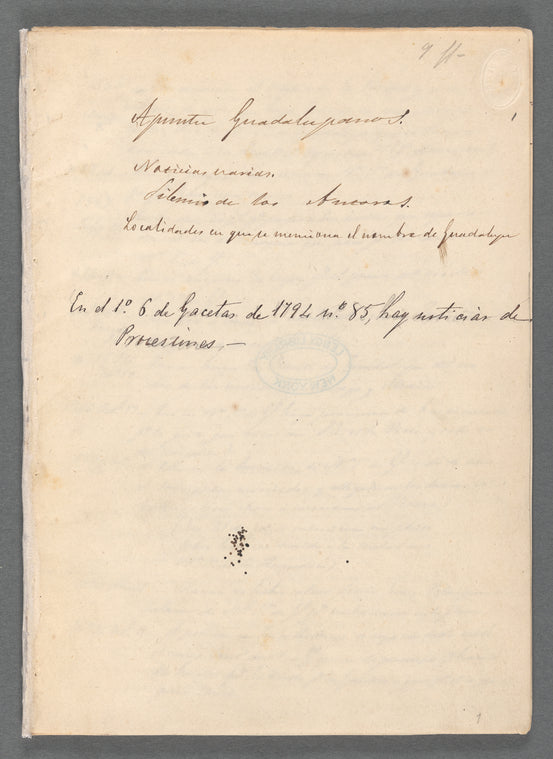 9 ff-
1
Apuntes Guadalupanos.
Noticias varias.
Silencio de los Autores.
Localidades en que se menciona el nombre de Guadalupe
En el 1º. 6 de Gacetas de 1794 nº. 85, hay noticias de
Procesiones,—
NEW YORK
1